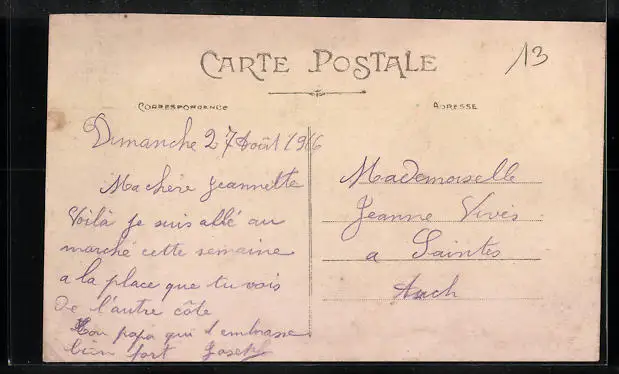 CARTE POSTALE
13
CORRESPONDENCE
ADRESSE
Dimanche 27 Août 1916
Ma chère Jeannette
Voilà je suis allé au
marché cette semaine
a la place que tu vois
de l'autre côte
Ton papa qui t'embrasse
bien fort Joseph
Mademoiselle
Jeanne Vivès
a Saintes
Auch